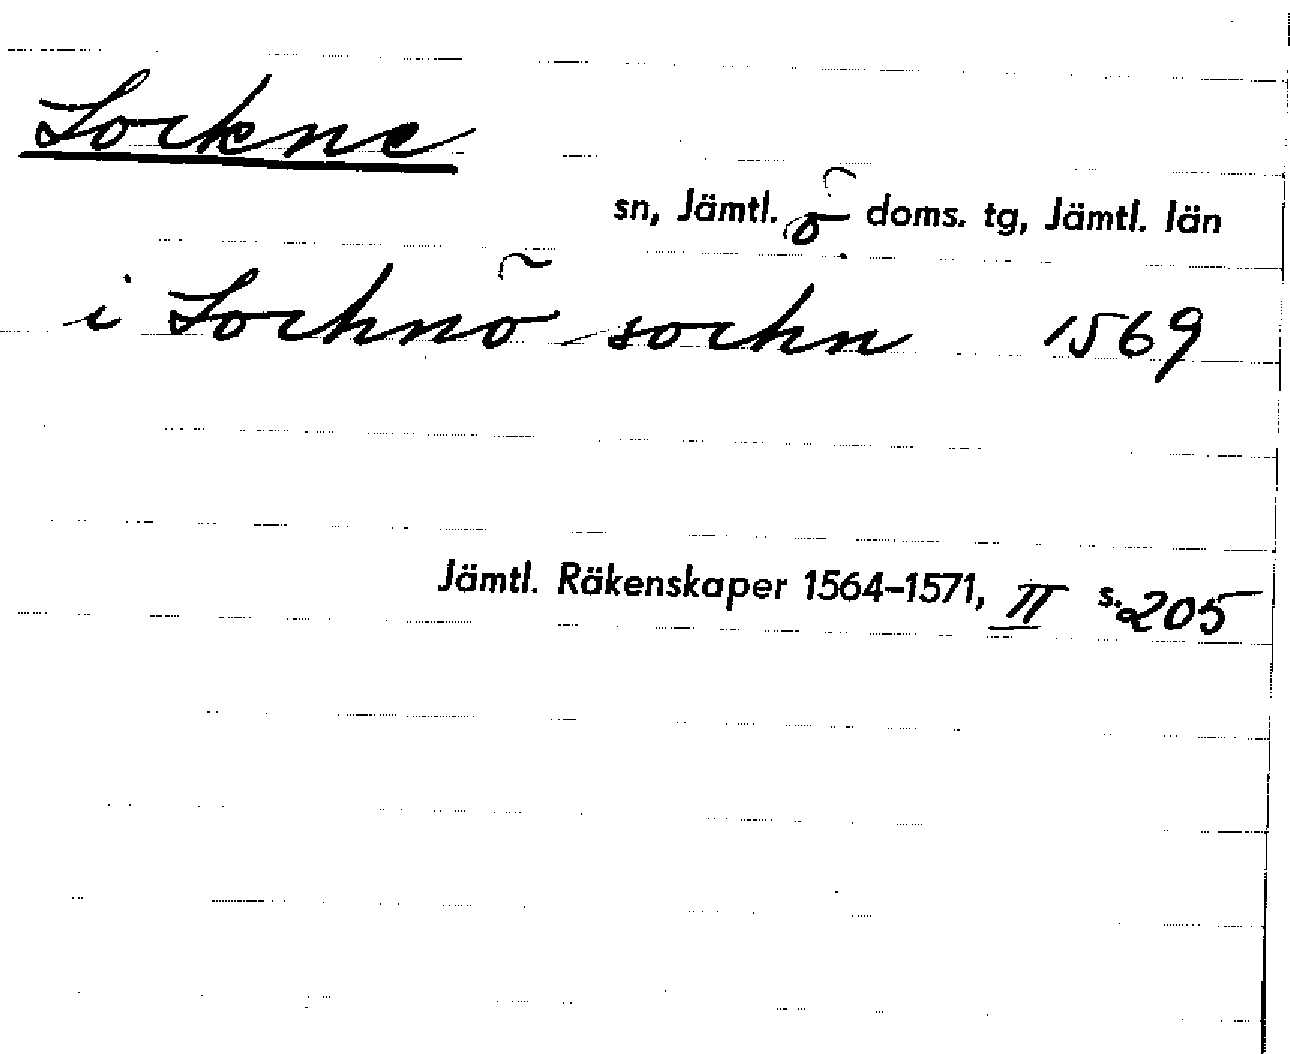 Lockne
sn, Jämtl. ö doms. tg, Jämtl. län
i Lochnö sochn 1569
Jämtl. Räkenskaper 1564–1571, II s. 205